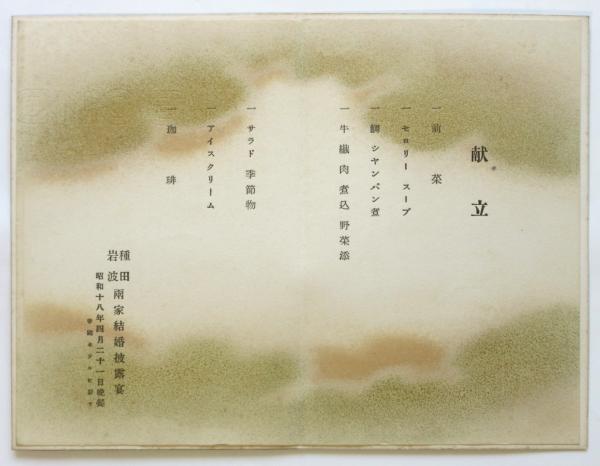 献立
一 前菜
一 セロリー スープ
一 鯛 シヤンパン煮
一 牛繊肉煮込 野菜添
一 サラド 季節物
一 アイスクリーム
一 珈琲
種田
岩波
兩家結婚披露宴
昭和十八年四月二十一日晩餐